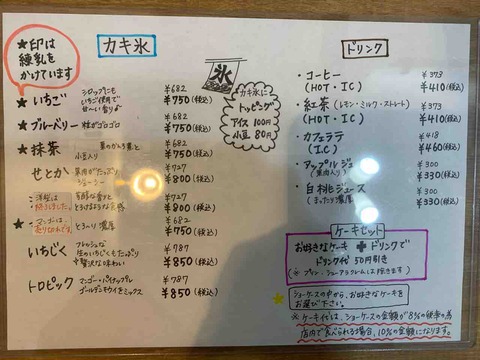 ★印は
練乳を
かけています
カキ氷
★いちご
シロップにも
いちご使用で
¥682
¥750(税込)
★ブルーベリー
粒がゴロゴロ
¥682
¥750(税込)
★抹茶
小豆入り
¥682
¥750(税込)
せとか
果肉がたっぷり
ジューシー
¥727
¥800(税込)
洋梨は
終了しました。
芳醇な香りと
とろけるような食感
¥727
¥800(税込)
★マンゴーは
売り切れです。
とろ〜り濃厚
¥682
¥750(税込)
いちじく
フレッシュな
生のいちじくもたっぷり
贅沢な味わい
¥787
¥850(税込)
トロピック
マンゴー・パイナップル
ゴールデンキウイをミックス
¥787
¥850(税込)
氷
カキ氷に
トッピング
アイス 100円
小豆 80円
ドリンク
・コーヒー
(HOT・IC)
¥373
¥410(税込)
・紅茶(レモン・ミルク・ストレート)
(HOT・IC)
¥373
¥410(税込)
・カフェラテ
(I.C)
¥418
¥460(税込)
・アップルジュ
(果肉入り)
¥300
¥330(税込)
・白桃ジュース
(まったり濃厚)
¥300
¥330(税込)
ケーキセット
お好きなケーキ+ドリンクで
ドリンク代 50円引き
(※プリン・シュークリームは除きます)
★ショーケースの中から、お好きなケーキを
お選び下さい。
※ケーキ代は、ショーケースの金額が8%の税率の為
店内で食べられる場合、10%の金額になります。